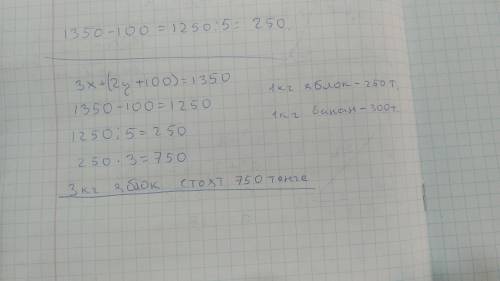 1350-100=1250:5= 250.
3x+(2y+100)=1350
1350-100=1250
1250:5=250
250·3=750
3кг яблок стоят 750 тенге
1кг яблок-250т.
1кг банан-300т.